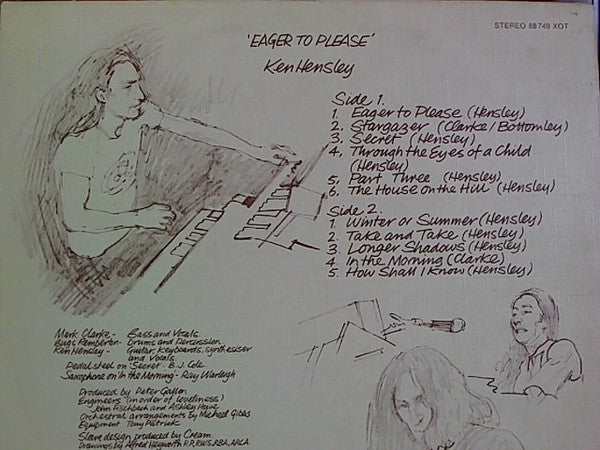 STEREO 88 749 XOT
'EAGER TO PLEASE'
Ken Hensley
Side 1.
1. Eager to Please (Hensley)
2. Stargazer (Clarke/Bottomley)
3. Secret (Hensley)
4. Through the Eyes of a Child
(Hensley)
5. Part Three (Hensley)
6. The House on the Hill (Hensley)
Side 2.
1. Winter or Summer (Hensley)
2. Take and Take (Hensley)
3. Longer Shadows (Hensley)
4. In the Morning (Clarke)
5. How Shall I Know (Hensley)
Mark Clarke - Bass and Vocals.
Bugs Pemberton - Drums and Percussion.
Ken Hensley - Guitar, Keyboards, Synthesiser
and Vocals
Pedal steel on 'Secret' - B.J. Cole
Saxophone on 'In the Morning' - Ray Warleigh
Produced by Peter Gallen
Engineers (in order of loveliness)
John Fischbach and Ashley Howe
Orchestral arrangements by Michael Gibbs
Equipment
Sleeve design produced by Cream
Drawings by Alfred